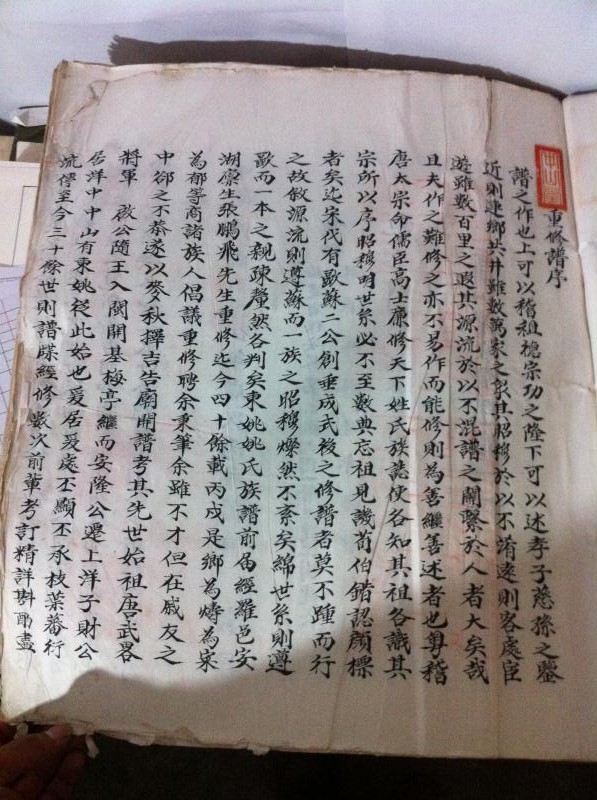 重修譜序
譜之作也上可以稽祖德宗功之隆下可以述孝子慈孫之鑒
近則連鄉共井雖數萬家之衆其昭穆於以不淆遠則客處宦
遊雖數百里之遐其源流於以不混譜之關繫於人者大矣哉
且夫作之難修之亦不易作而能修則為善繼善述者也粵稽
唐太宗命儒臣高士廉修天下姓氏族誌使各知其祖各識其
宗所以序昭穆明世系必不至數典忘祖見譏荀伯錯認顏標
者矣迄宋代有歐蘇二公創垂成式後之修譜者莫不踵而行
之故敘源流則遵蘇而一族之昭穆燦然不紊矣綿世系則遵
歐而一本之親疎釐然各判矣東姚姚氏族譜前届經羅邑安
湖廪生張鵬飛先生重修迄今四十餘載丙戌是鄉為燽為宋
為郁等商諸族人倡議重修聘余秉筆余雖不才但在戚友之
中郤之不恭遂以麥秋擇吉告廟開譜考其先世始祖唐武畧
將軍 啟公隨王入閩開基梅亭繼而安隆公遷上洋子財公
居洋中中山有東姚從此始也爰居爰處丕顯丕承枝葉蕃衍
流傳至今三十餘世則譜牒經修數次前輩考訂精詳斟酌盡